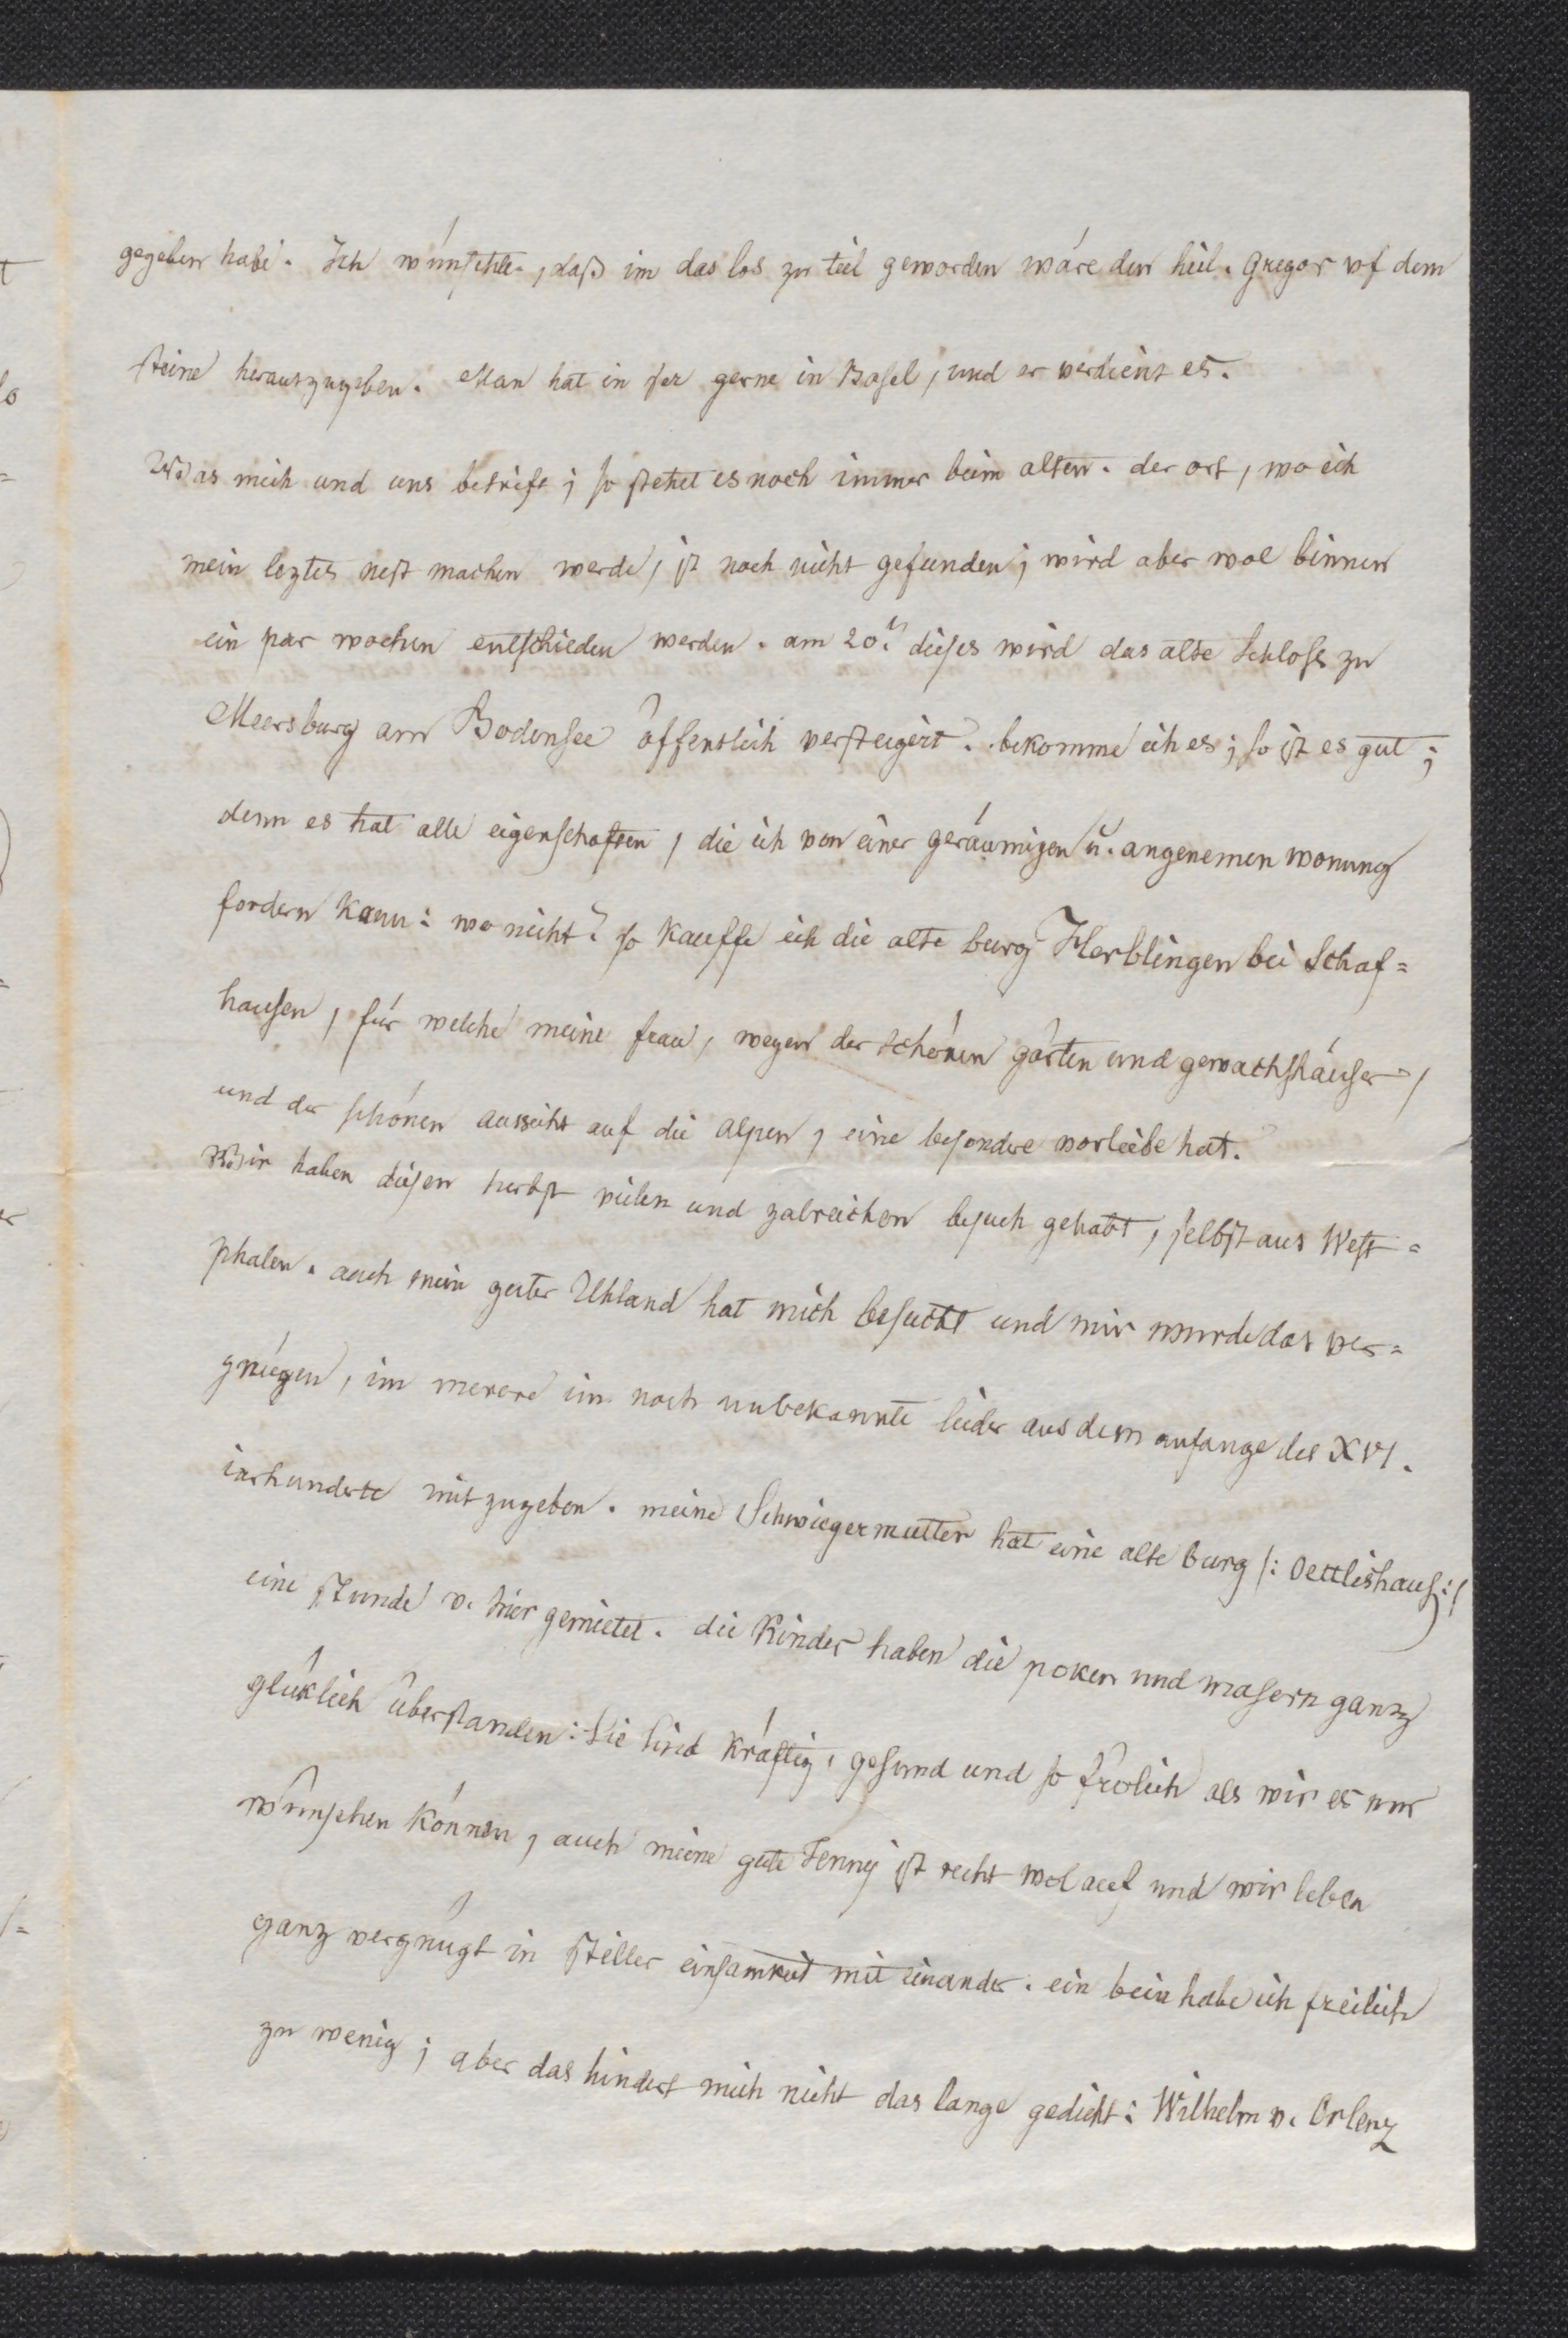 gegeben habe. Ich wünschte, daß im das los zu teil geworden wäre den heil. Gregor uf dem
steine herauszugeben. Man hat in ser gerne in Basel, und er verdient es.
Was mich und uns betrift; so stehet es noch immer beim alten. der ort, wo ich
mein leztes nest machen werde, ist noch nicht gefunden; wird aber wol binnen
ein par wochen entschieden werden. am 20n dieses wird das alte Schloss zu
Meersburg am Bodensee öffentlich versteigert. bekomme ich es; so ist es gut;
denn es hat alle eigenschaften, die ich von einer geräumigen u. angenemen wonung
fordern kann: wo nicht? so kauffe ich die alte burg Herblingen bei Schaf=
hausen, für welche meine frau, wegen der schönen gärten und gewachshäuser,
und der schönen aussicht auf die alpen, eine besondere vorliebe hat.
Wir haben diesen herbst vielen und zalreichen besuch gehabt, selbst aus West=
phalen. auch mein guter Uhland hat mich besucht und mir wurde das ver=
gnügen, im merere im noch unbekannte lieder aus dem anfange des XVI.
iarhunderts mitzugeben. meine Schwiegermutter hat eine alte burg /: Oettlishaus:/
eine stunde v. hier gemietet. die Kinder haben die poken und masern ganz
glüklich überstanden: Sie sind kräftig, gesund und so frölich als wir es nur
wünschen können, auch meine gute Jenny ist recht wol auf und wir leben
ganz vergnügt in stiller einsamkeit mit einander. ein bein habe ich freilich
zu wenig; aber das hindert mich nicht das lange gedicht: Wilhelm v. Orlenz